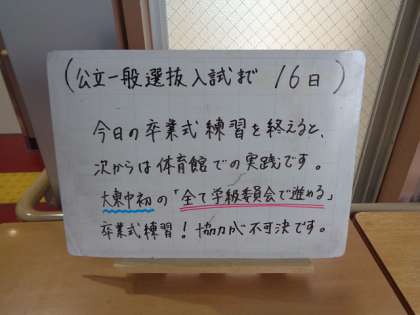 (公立一般選抜入試まで 16日)
今日の卒業式練習を終えると、
次からは体育館での実践です。
大東中初の「全て学級委員会で進める」
卒業式練習!協力が不可決です。